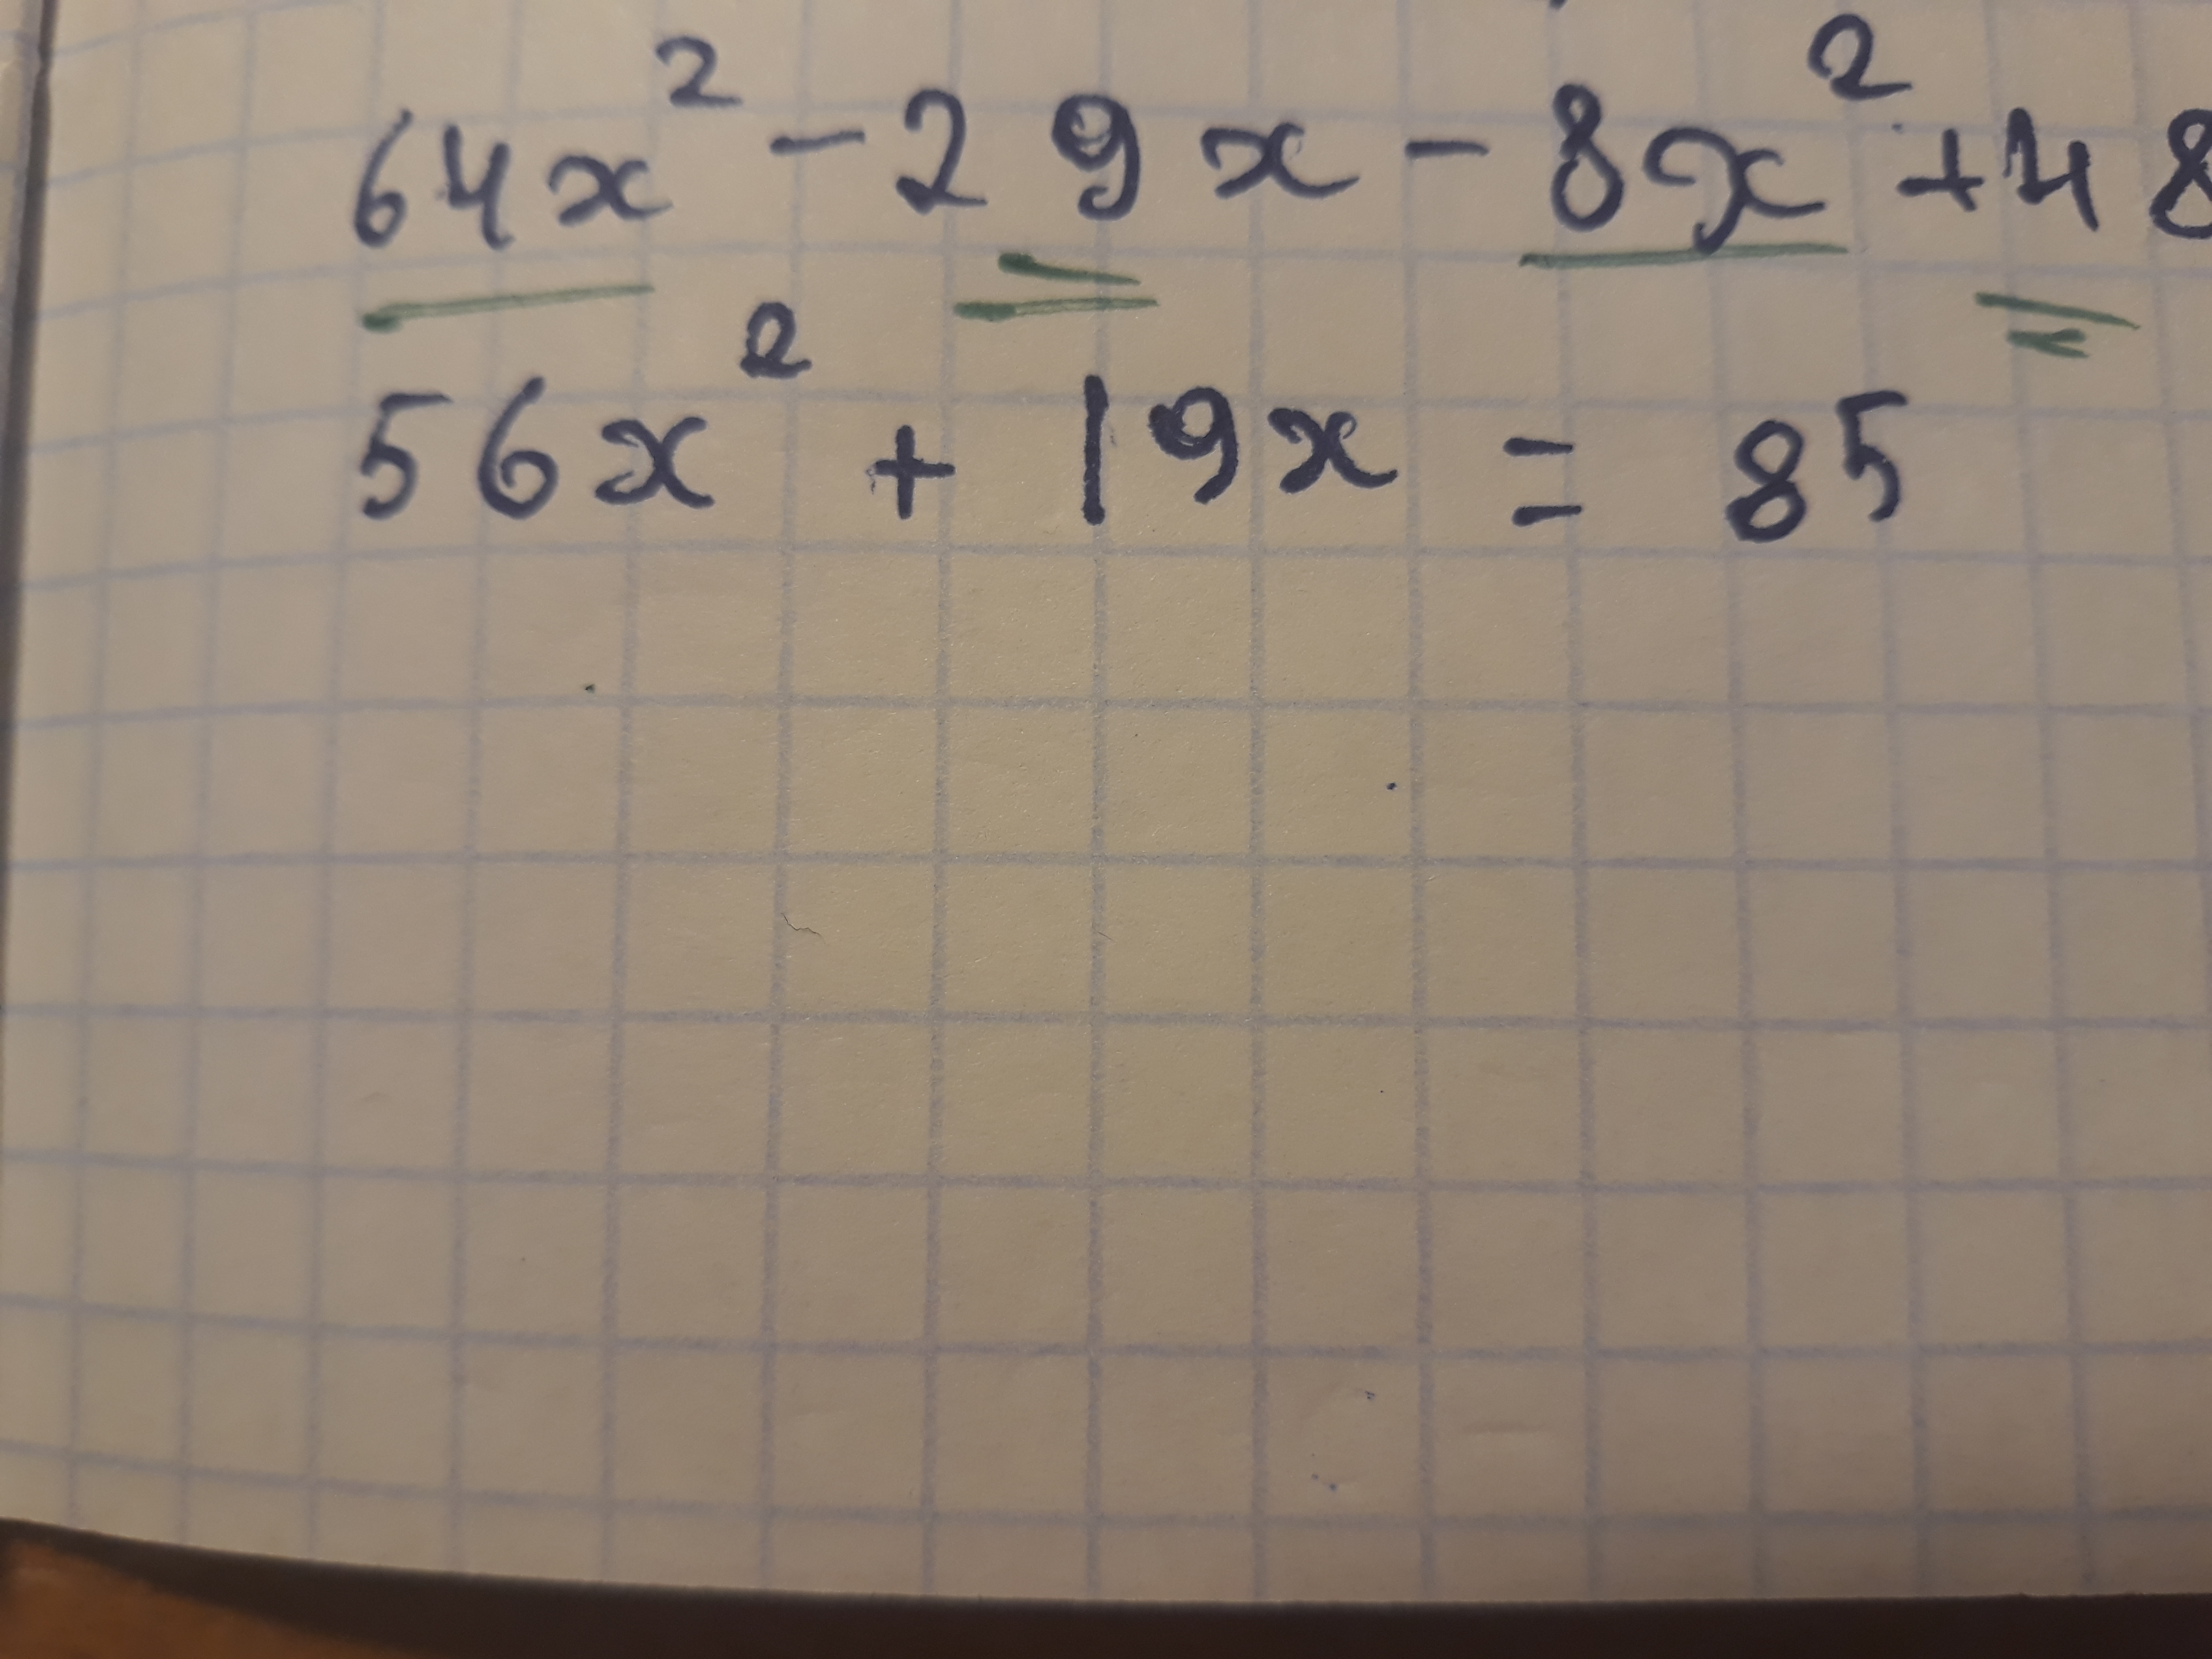 64x² - 29x - 8x² + 48
56x² + 19x = 85